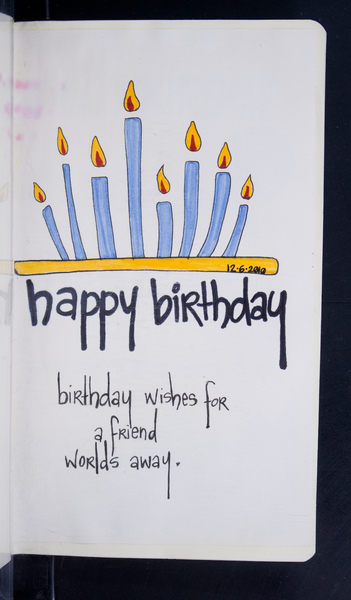 12-6-2010
happy birthday
birthday wishes for
a friend
worlds away.